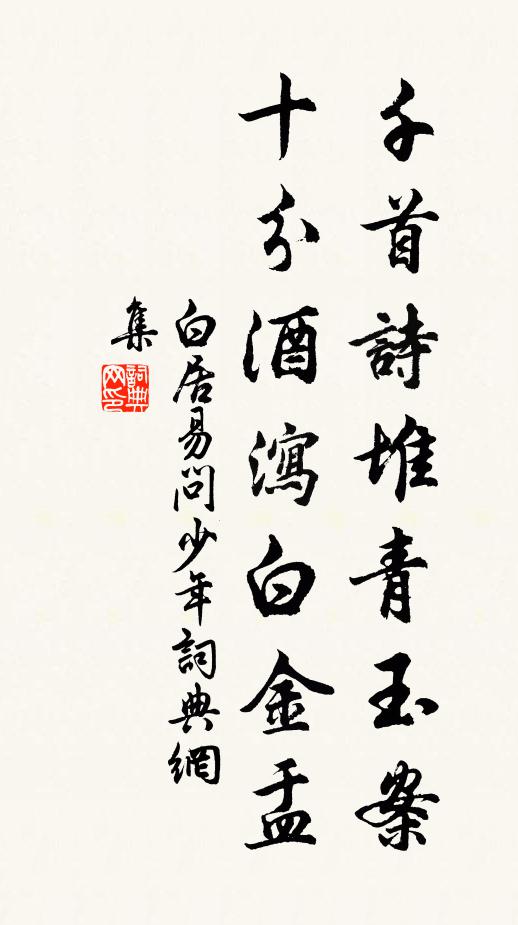 千首詩堆青玉案
十分酒瀉白金盂
白居易問少年詞典網
集
詞典
网印